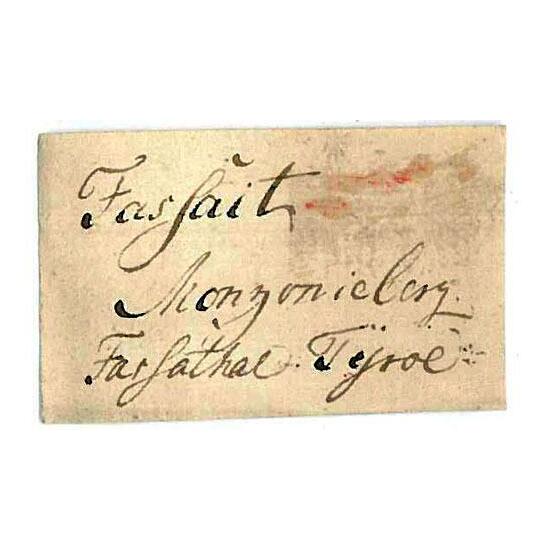 Fassait
Monzonieberg.
Fassathal Tÿrol